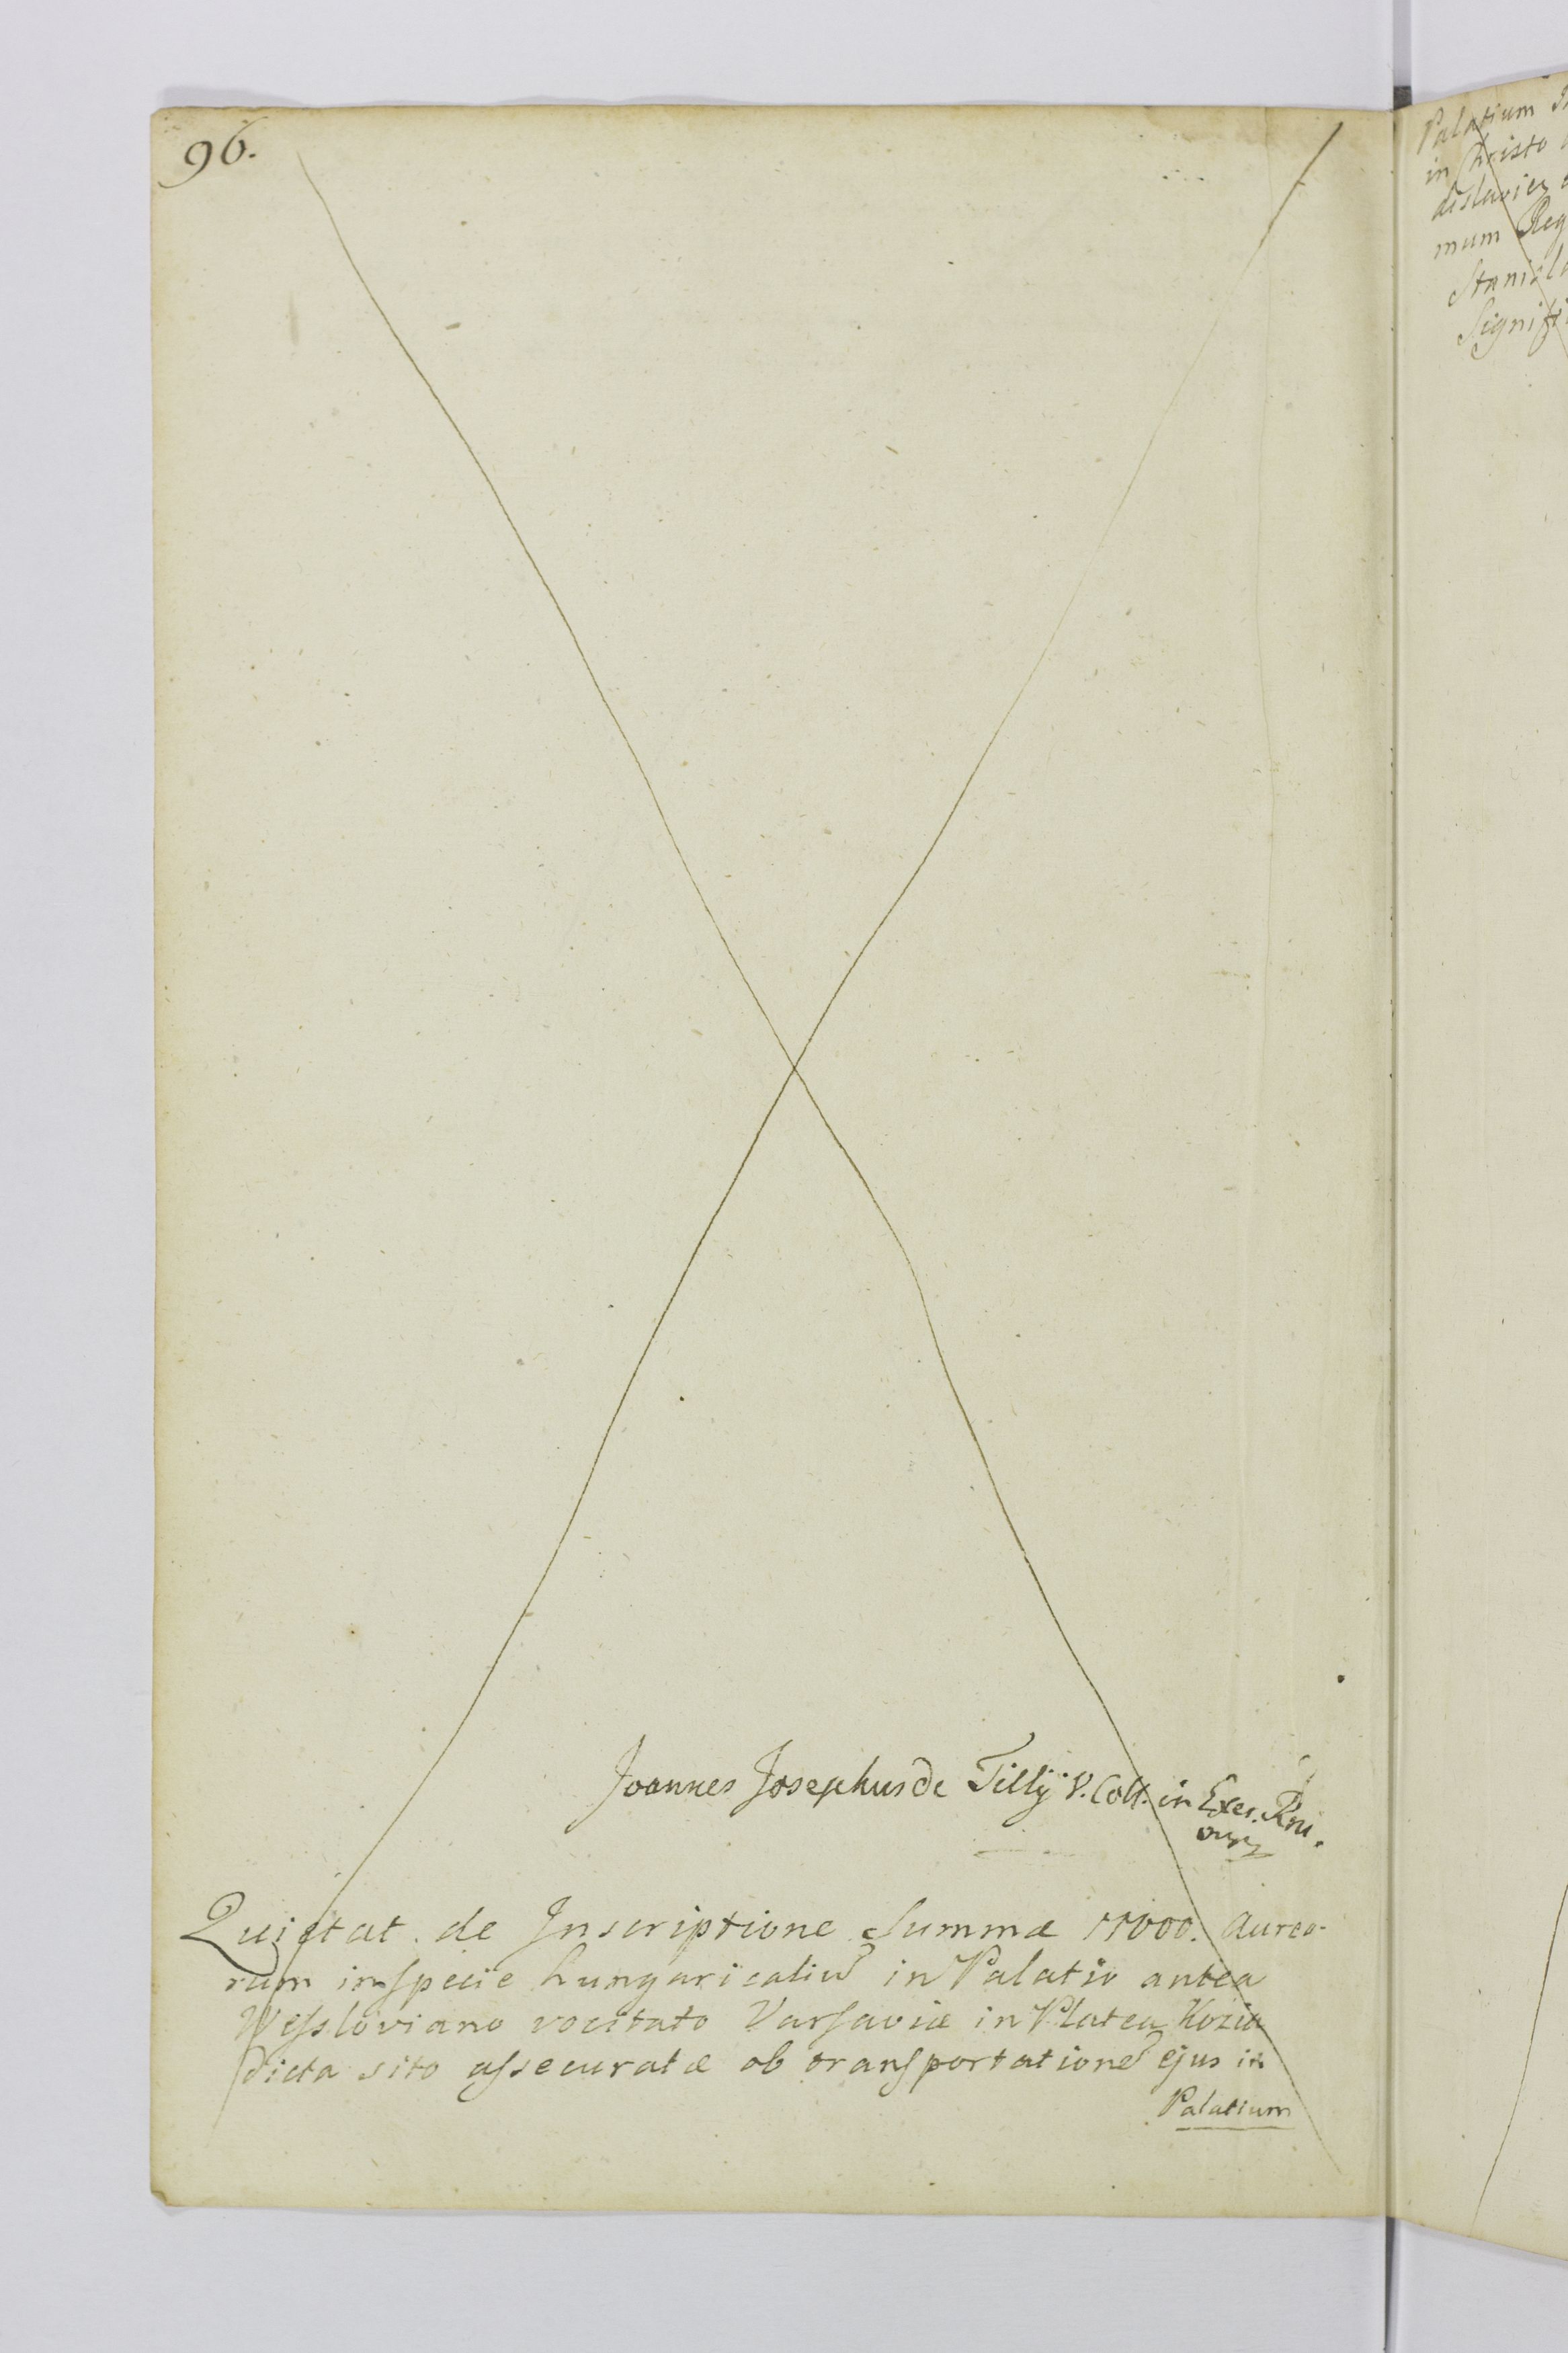 96.
Joannes Josephus de Tillÿ V. Coll. in Exer. Rni.
Quietat. de Inscriptione Summæ 11000. Aureo-
rum in specie hungaricaliū in Palatio antea
Wessloviano vocitato Varsaviæ in Platea Kozia
dicta sito assecuratæ ob transportationē ejus in
Palatium
Palatium
in Christo
dislaviey
mum Reg
Stanisla
Signifi